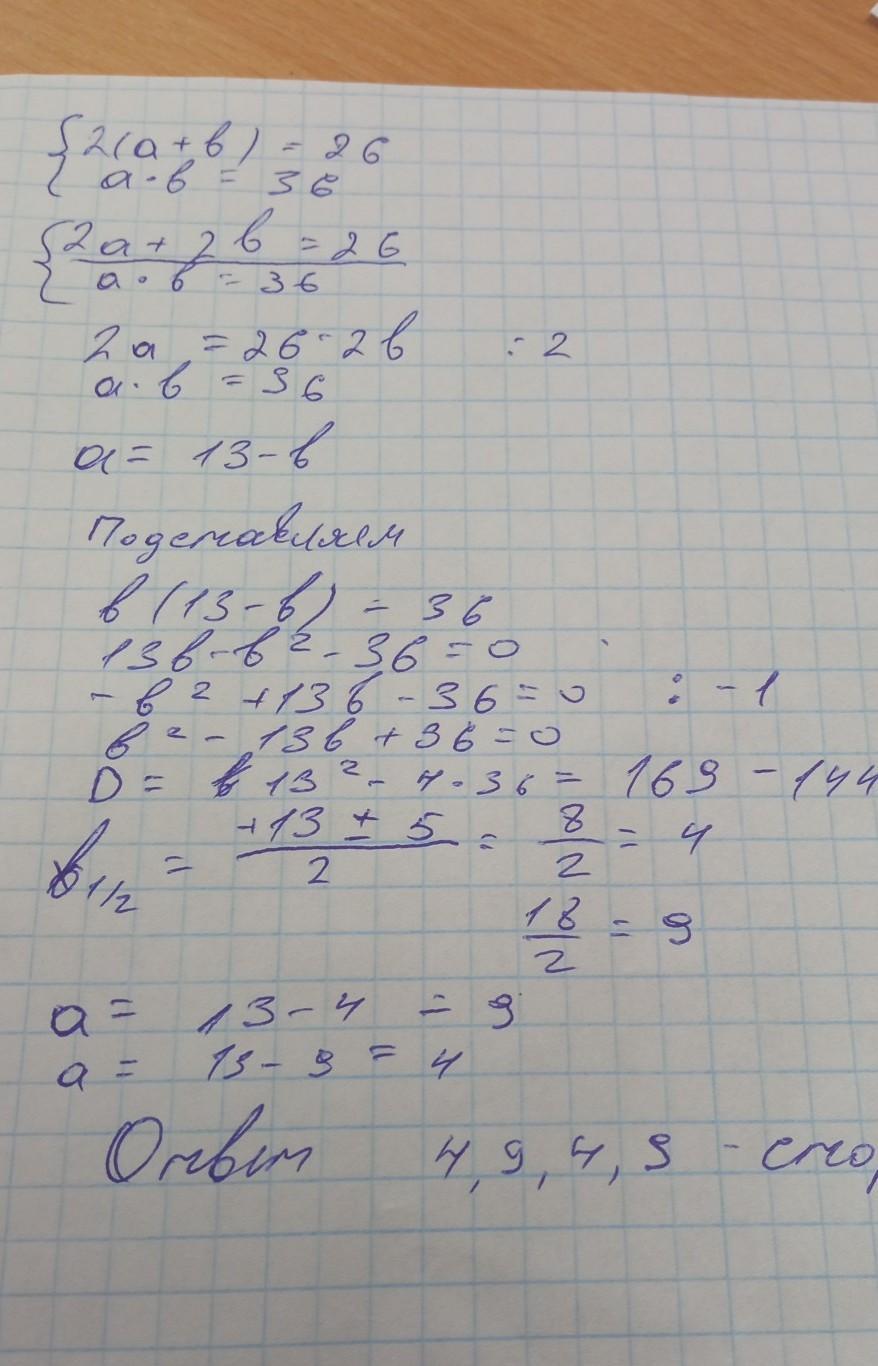 { 2(a + в) = 26
a · в = 36
{ 2a + 2в = 26
a · в = 36
2a = 26 - 2в : 2
a · в = 36
a = 13 - в
Подставляем
в (13 - в) = 36
13в - в² - 36 = 0
- в² + 13в - 36 = 0 : -1
в² - 13в + 36 = 0
D = 13² - 4 · 36 = 169 - 144
в1/2 = +13 ± 5 / 2 = 8/2 = 4
18/2 = 9
a = 13 - 4 = 9
a = 13 - 9 = 4
Ответ 4, 9, 4, 9 - сто